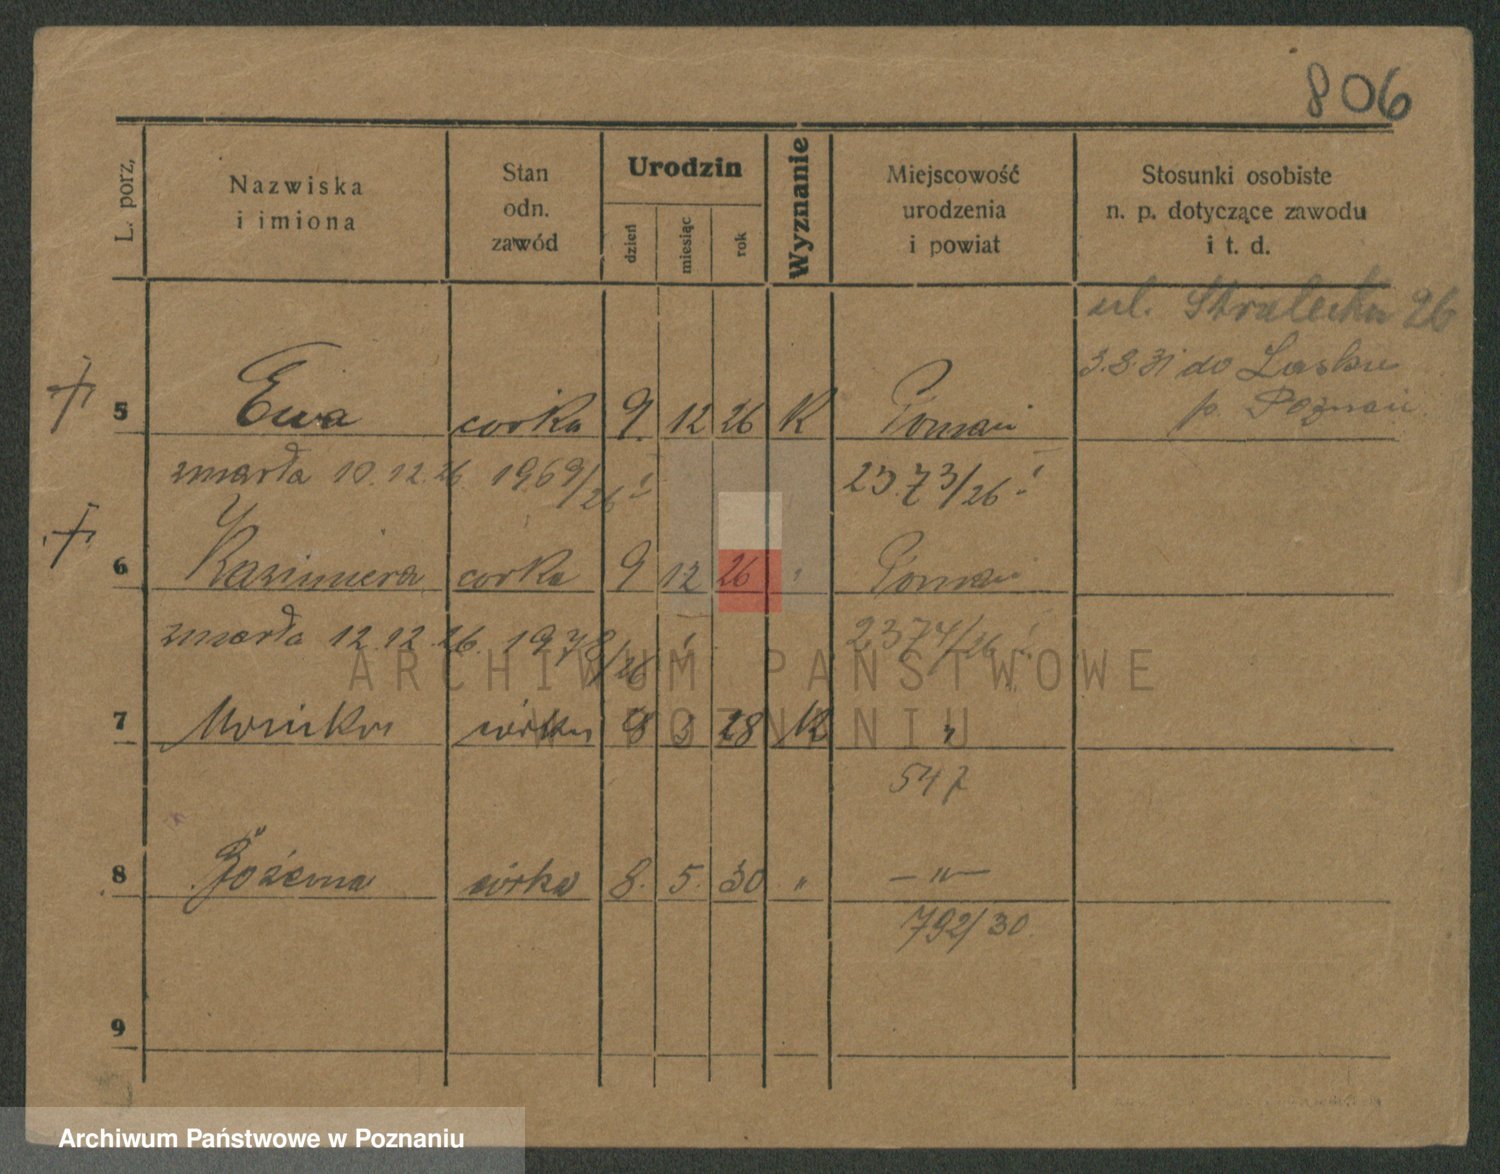 806
L. porz.
Nazwiska
i imiona
Stan
odn.
zawód
Urodzin
dzień
miesiąc
rok
Wyznanie
Miejscowość
urodzenia
i powiat
Stosunki osobiste
n. p. dotyczące zawodu
i t. d.
ul. Strzelecka 26
3.3.31 do Lasku
p. Poznań
5 Ewa corka 9. 12 26 K Poznań
zmarła 10.12.26. 1969/26 2373/26
6 Kazimiera corka 9 12 26 " Poznań
zmarła 12.12.26. 1978/26 2374/26
ARCHIWUM PAŃSTWOWE
W POZNANIU
7 córka 3 28 K "
547
8 Bożena córka 8. 5. 30 " — " —
792/30
9
Archiwum Państwowe w Poznaniu